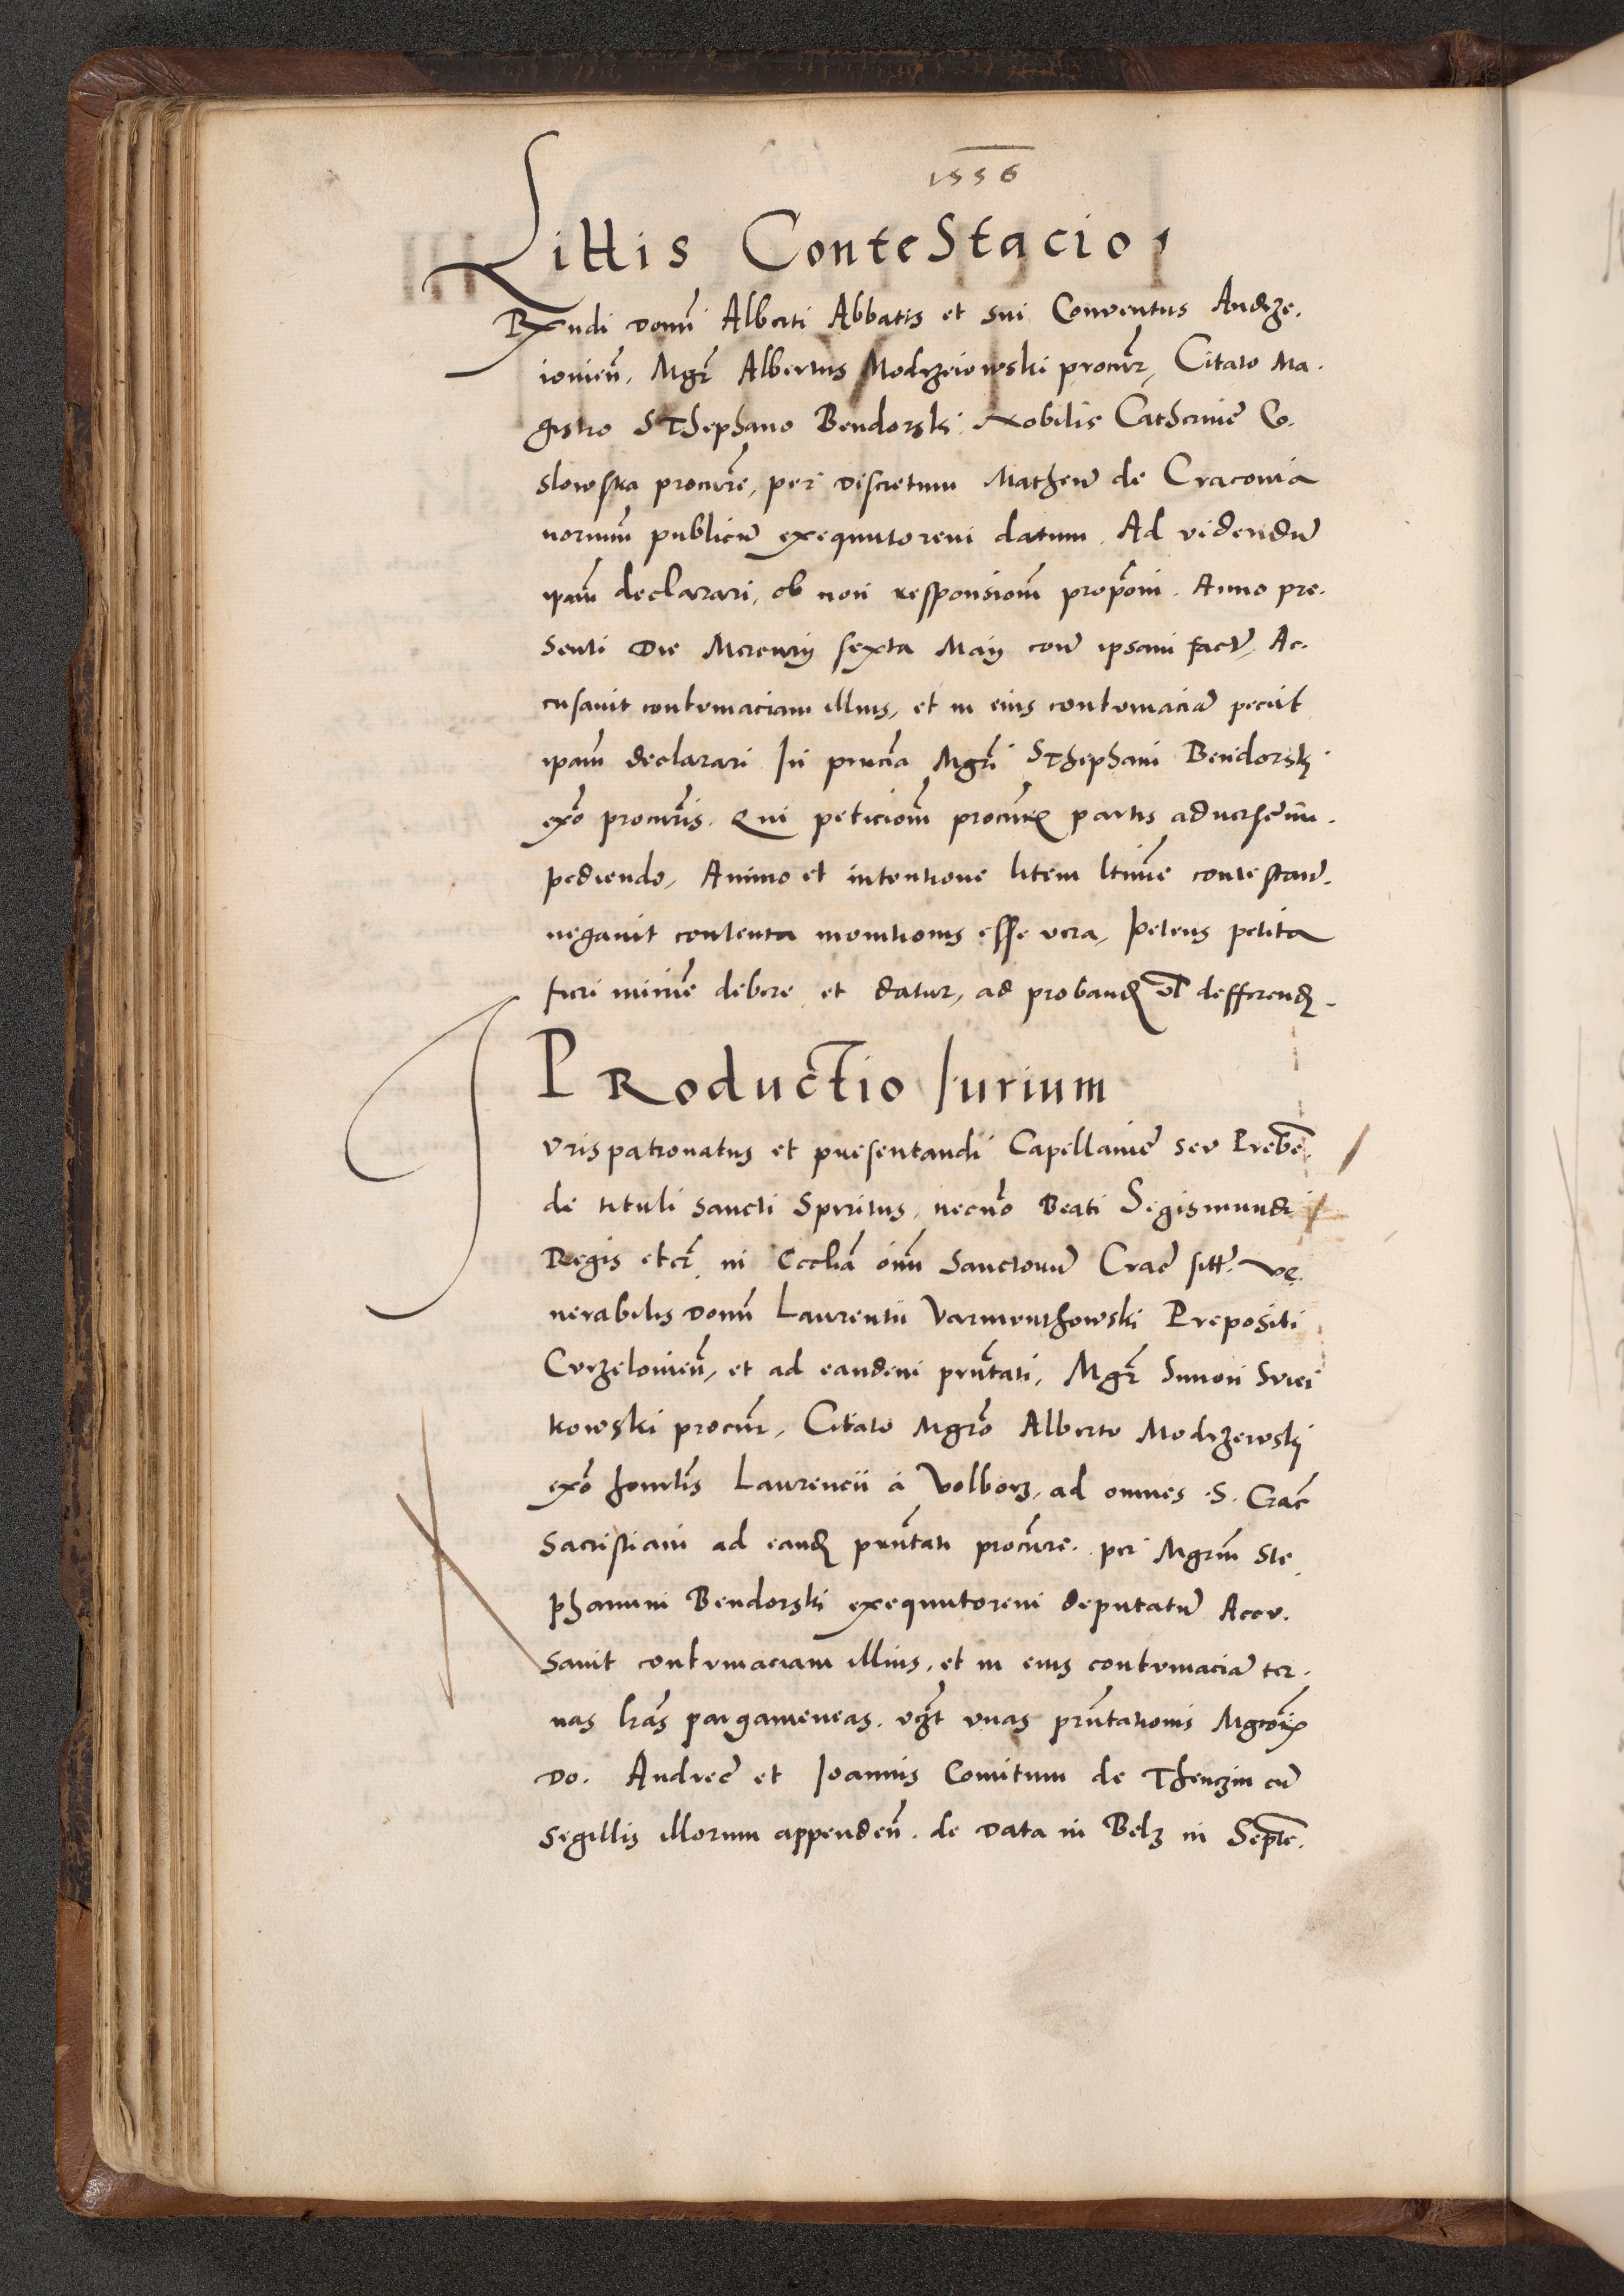 1556
Littis ConteStacio
Rxndi domi Alberti Abbatis et sui Conventus Andrze.
iouien. Mgr Albertus Modrzeiowski procur, Citato Ma.
gistro SThephano Bendorski Nobilis Catherine Co.
slowska procure, per discretum Matheu de Cracouia
norium publicu exequutorem datum. Ad videndu
ipam declarari, ob non responsionem proponi. Anno pre.
senti die Mercurij sexta Maij con ipsam fact, Ac.
cusauit contumaciam illius, et in eius contumacia peciit
ipam declarari In pncia Mgri SThephani Bendorski
exo procuris. Qui peticionem procur partis aduerse im.
pediendo, Animo et intentione litem ltime contestan.
negauit contenta monitionis esse vera, petens petita
fieri minime debere et datur, ad proband vl defferend.
PRoductio Iurium
Jvris patronatus et presentandi Capellanie seu Prebe.
de tituli sancti Spiritus, necno Beati Segismundi
Regis etc in Ecclia oim Sanctorum Crac sitt. Ve.
nerabilis domi Laurentii Varmunthowski Prepositi
Curzelouien, et ad eandem pntati, Mgr Simon Sviei
kowski procur, Citato Mgro Alberto Modrzewski
exo honilis Laurencii a Volborz, ad omnes .S. Crac
Sacristiani ad eand pntati procure. per Mgrm Ste
phanum Bendorski exequutorem deputatu Accu.
sauit contumaciam illius, et in eius contumacia ter.
nas lras pargameneas. vzt vnas pntationis Mgcor
Do. Andree et Joannis Comitum de Thenczin cu
Segillis illorum appenden. de data in Belz in Septe.